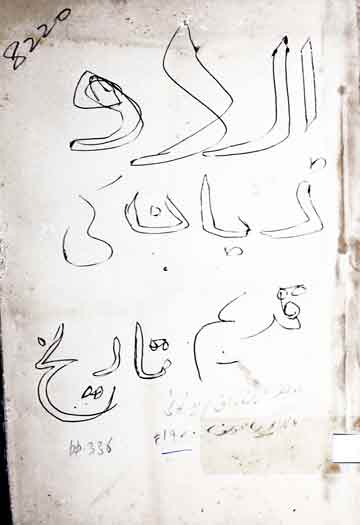 8220
اردو
زبان کی
قدیم
تاریخ
pp. 336